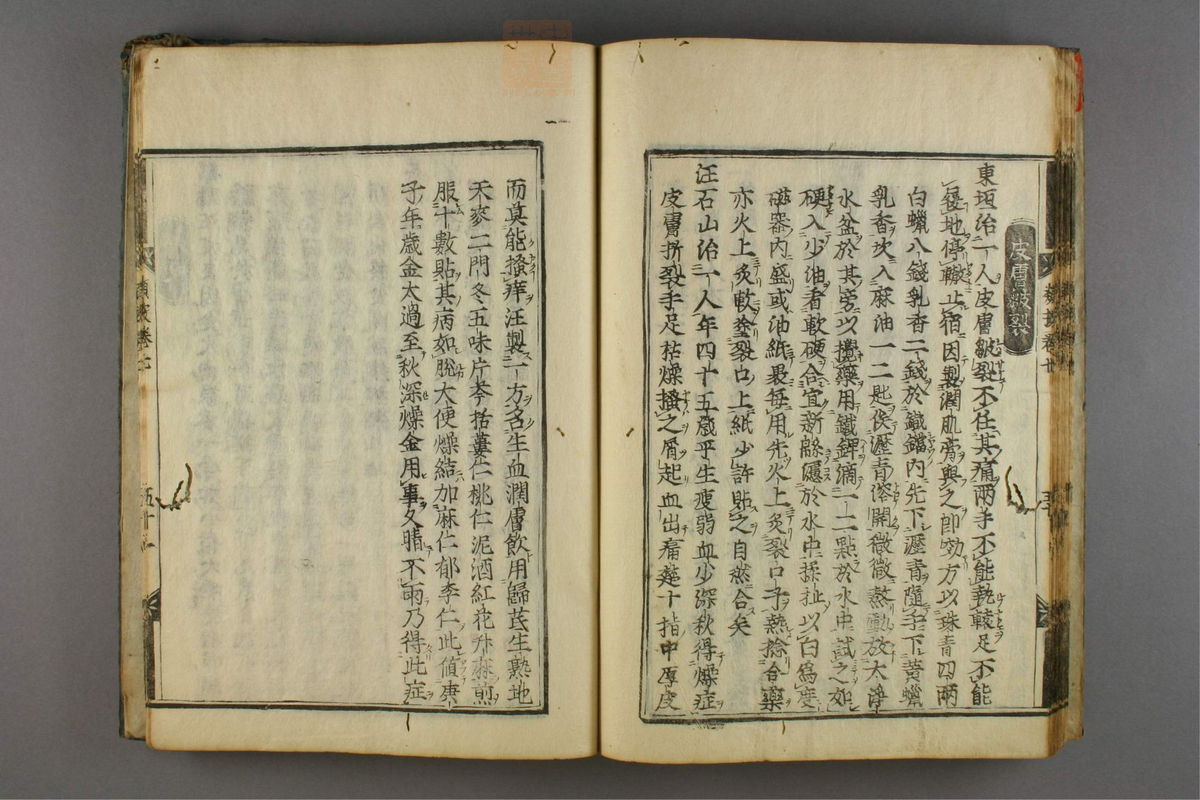 皮膚皴裂
東垣治一人皮膚皴裂不任其痛兩手不能執轅足不能
履地停轍止宿因製潤肌膏與之卽効方以珠青四兩
白蠟八錢乳香二錢於鐵鐺內先下瀝青隨手下黃蠟
乳香次入麻油一二匙俟瀝青溶開微微熬動放大淨
水盆於其旁以攪藥用鐵錍滴一二點於水中試之如
硬入少油看軟硬合宜新緜濾於水中揉扯以白爲度
磁器內盛或油紙裹每用先火上炙裂口子熱捻合藥
亦火上炙軟塗裂口上紙少許貼之自然合矣
汪石山治一人年四十五歲平生瘦弱血少深秋得燥症
皮膚折裂手足枯燥搔之屑起血出痛楚十指中厚皮
而莫能搔痒汪製一方名生血潤膚飲用歸芪生熟地
天麥二門冬五味片芩括蔞仁桃仁泥酒紅花升麻煎
服十數貼其病如脫大便燥結加麻仁郁李仁此値庚
子年歲金太過至秋深燥金用事久晴不雨乃得此症